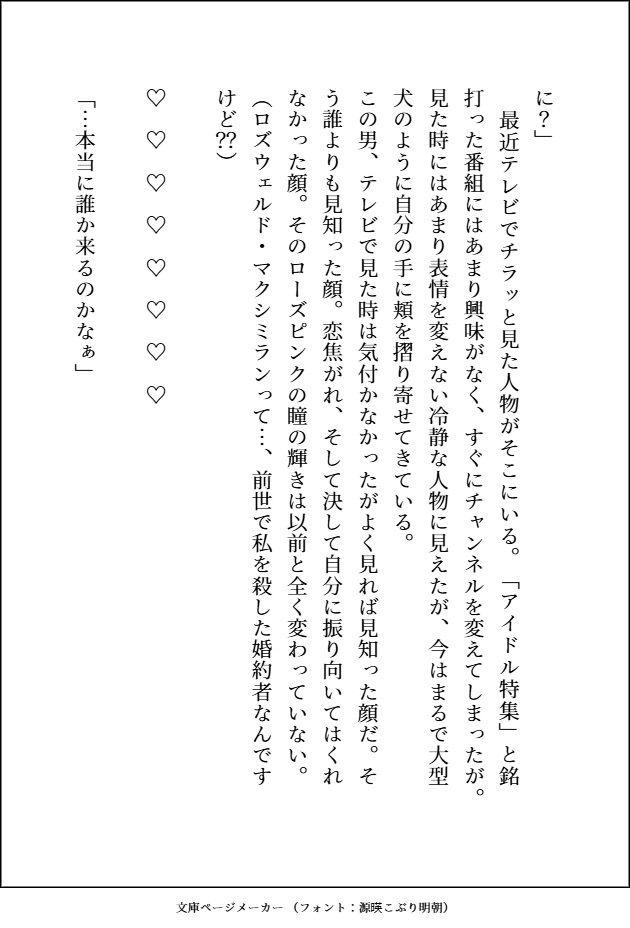 に？」
　最近テレビでチラッと見た人物がそこにいる。「アイドル特集」と銘
打った番組にはあまり興味がなく、すぐにチャンネルを変えてしまったが。
見た時にはあまり表情を変えない冷静な人物に見えたが、今はまるで大型
犬のように自分の手に頬を摺り寄せてきている。
この男、テレビで見た時は気付かなかったがよく見れば見知った顔だ。そ
う誰よりも見知った顔。恋焦がれ、そして決して自分に振り向いてはくれ
なかった顔。そのローズピンクの瞳の輝きは以前と全く変わっていない。
（ロズウェルド・マクシミランって…、前世で私を殺した婚約者なんです
けど⁇）
♡♡♡♡♡♡♡♡
「…本当に誰か来るのかなぁ」
文庫ページメーカー（フォント：源暎こぶり明朝）